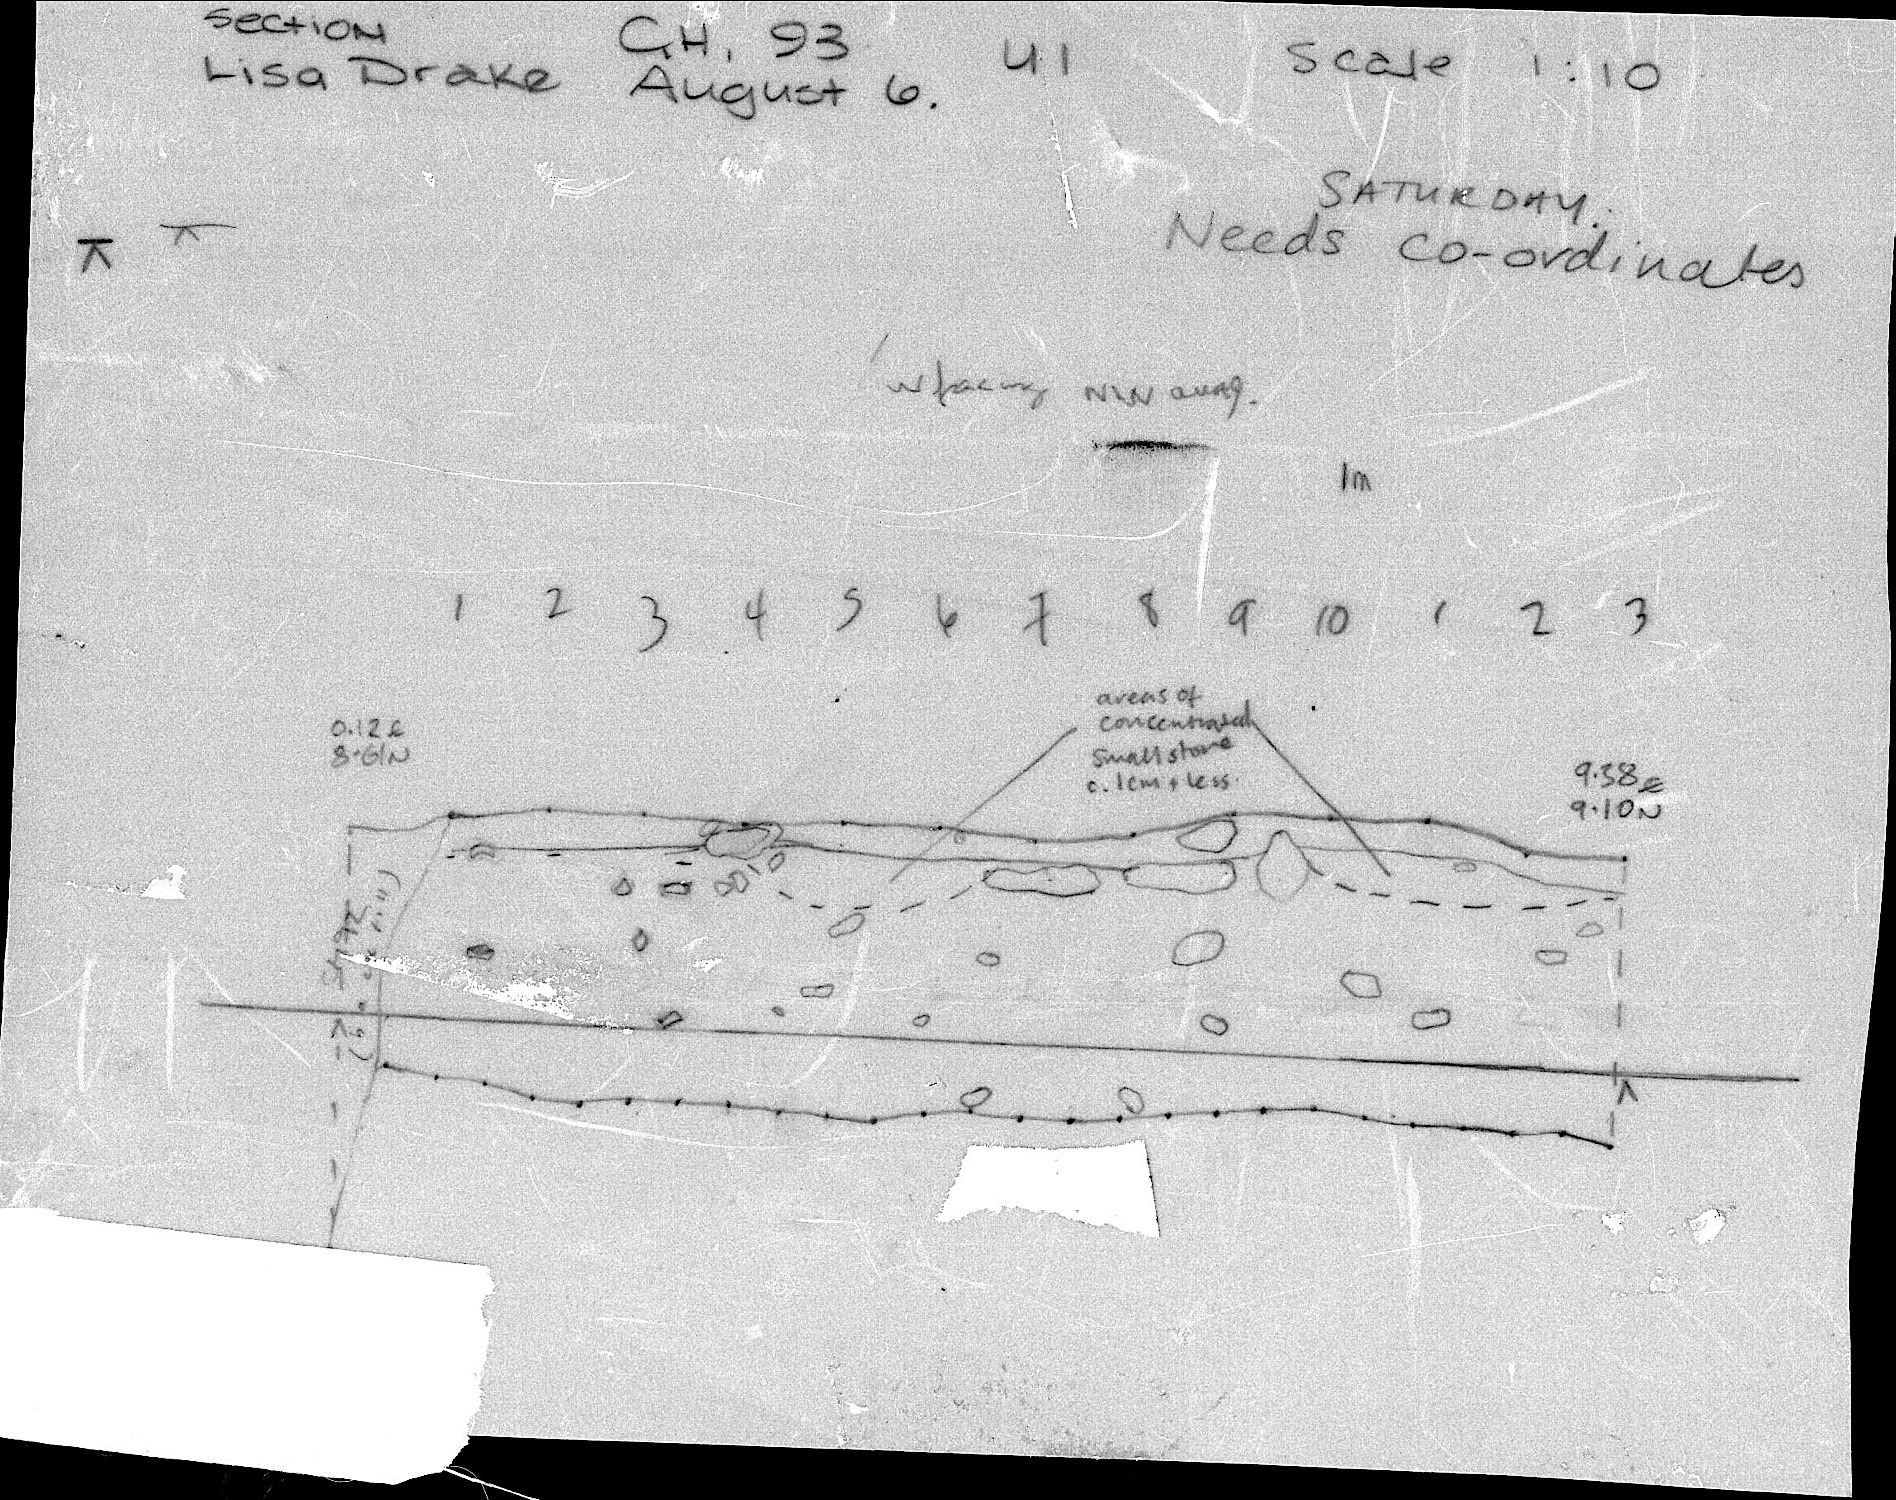 Section C.H. 93 U1 Scale 1:10
Lisa Drake August 6.
SATURDAY.
Needs co-ordinates
W facing NW quad.
1m
1 2 3 4 5 6 7 8 9 10 1 2 3
areas of
concentrated
small stone
c. 1cm + less.
0.12E
8.61N
9.38E
9.10N